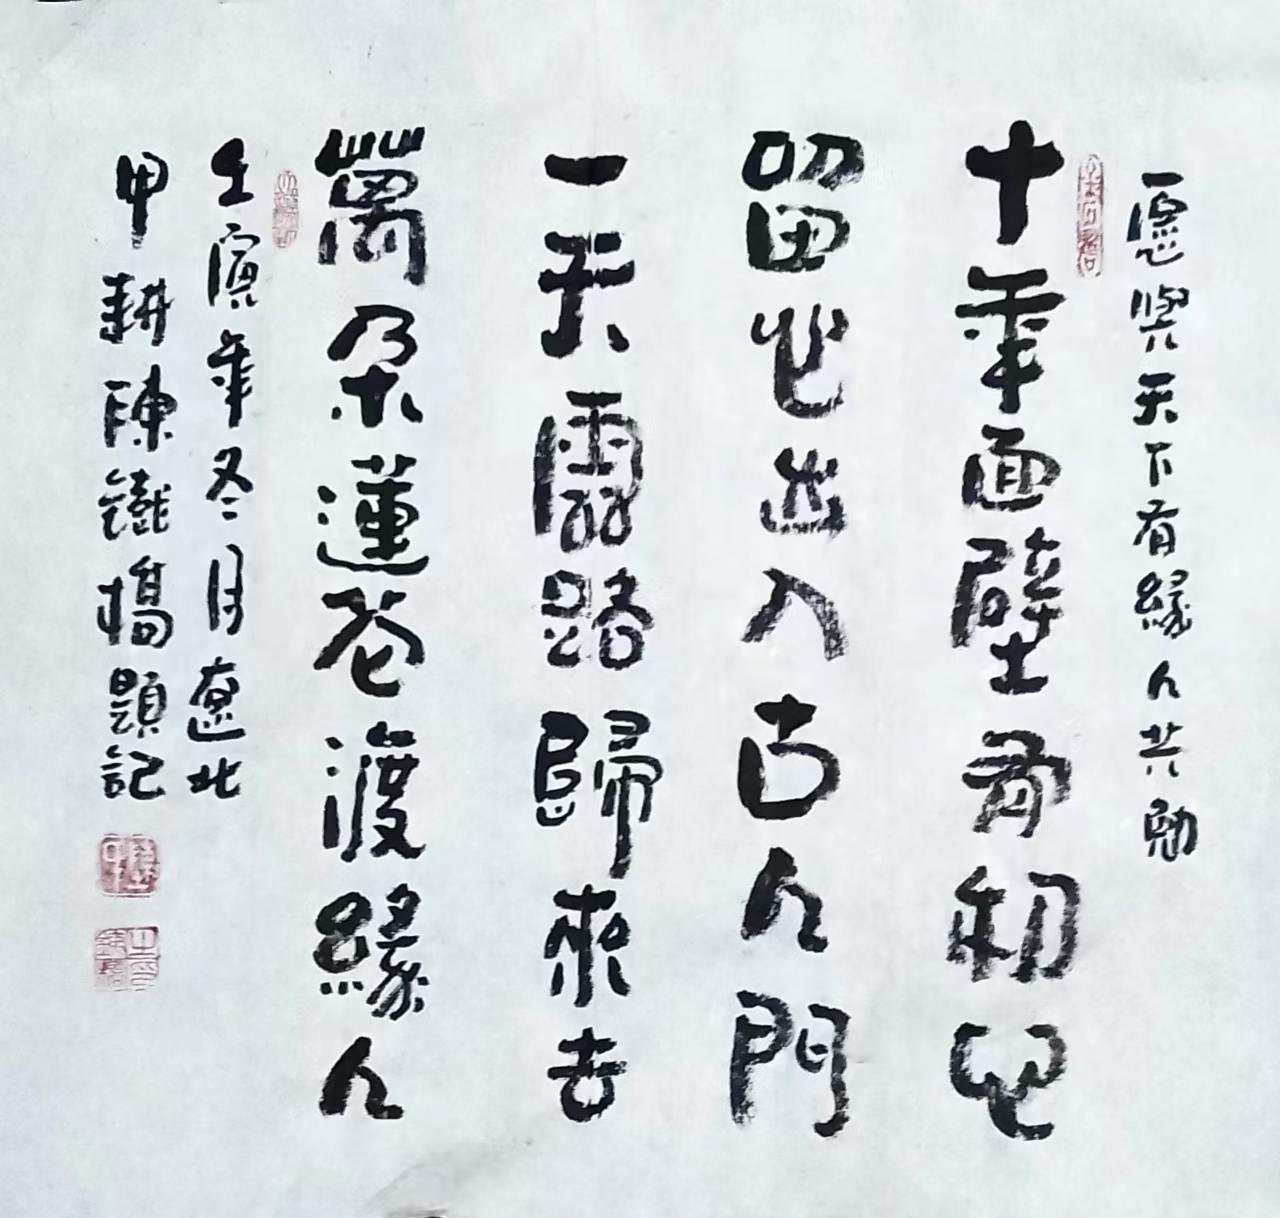 愿與天下有緣人共勉
十年面壁初心
留出入古人門
一天路歸來去
萬朵蓮花渡緣人
壬寅年冬月遼北
甲耕陳鐵橋題記